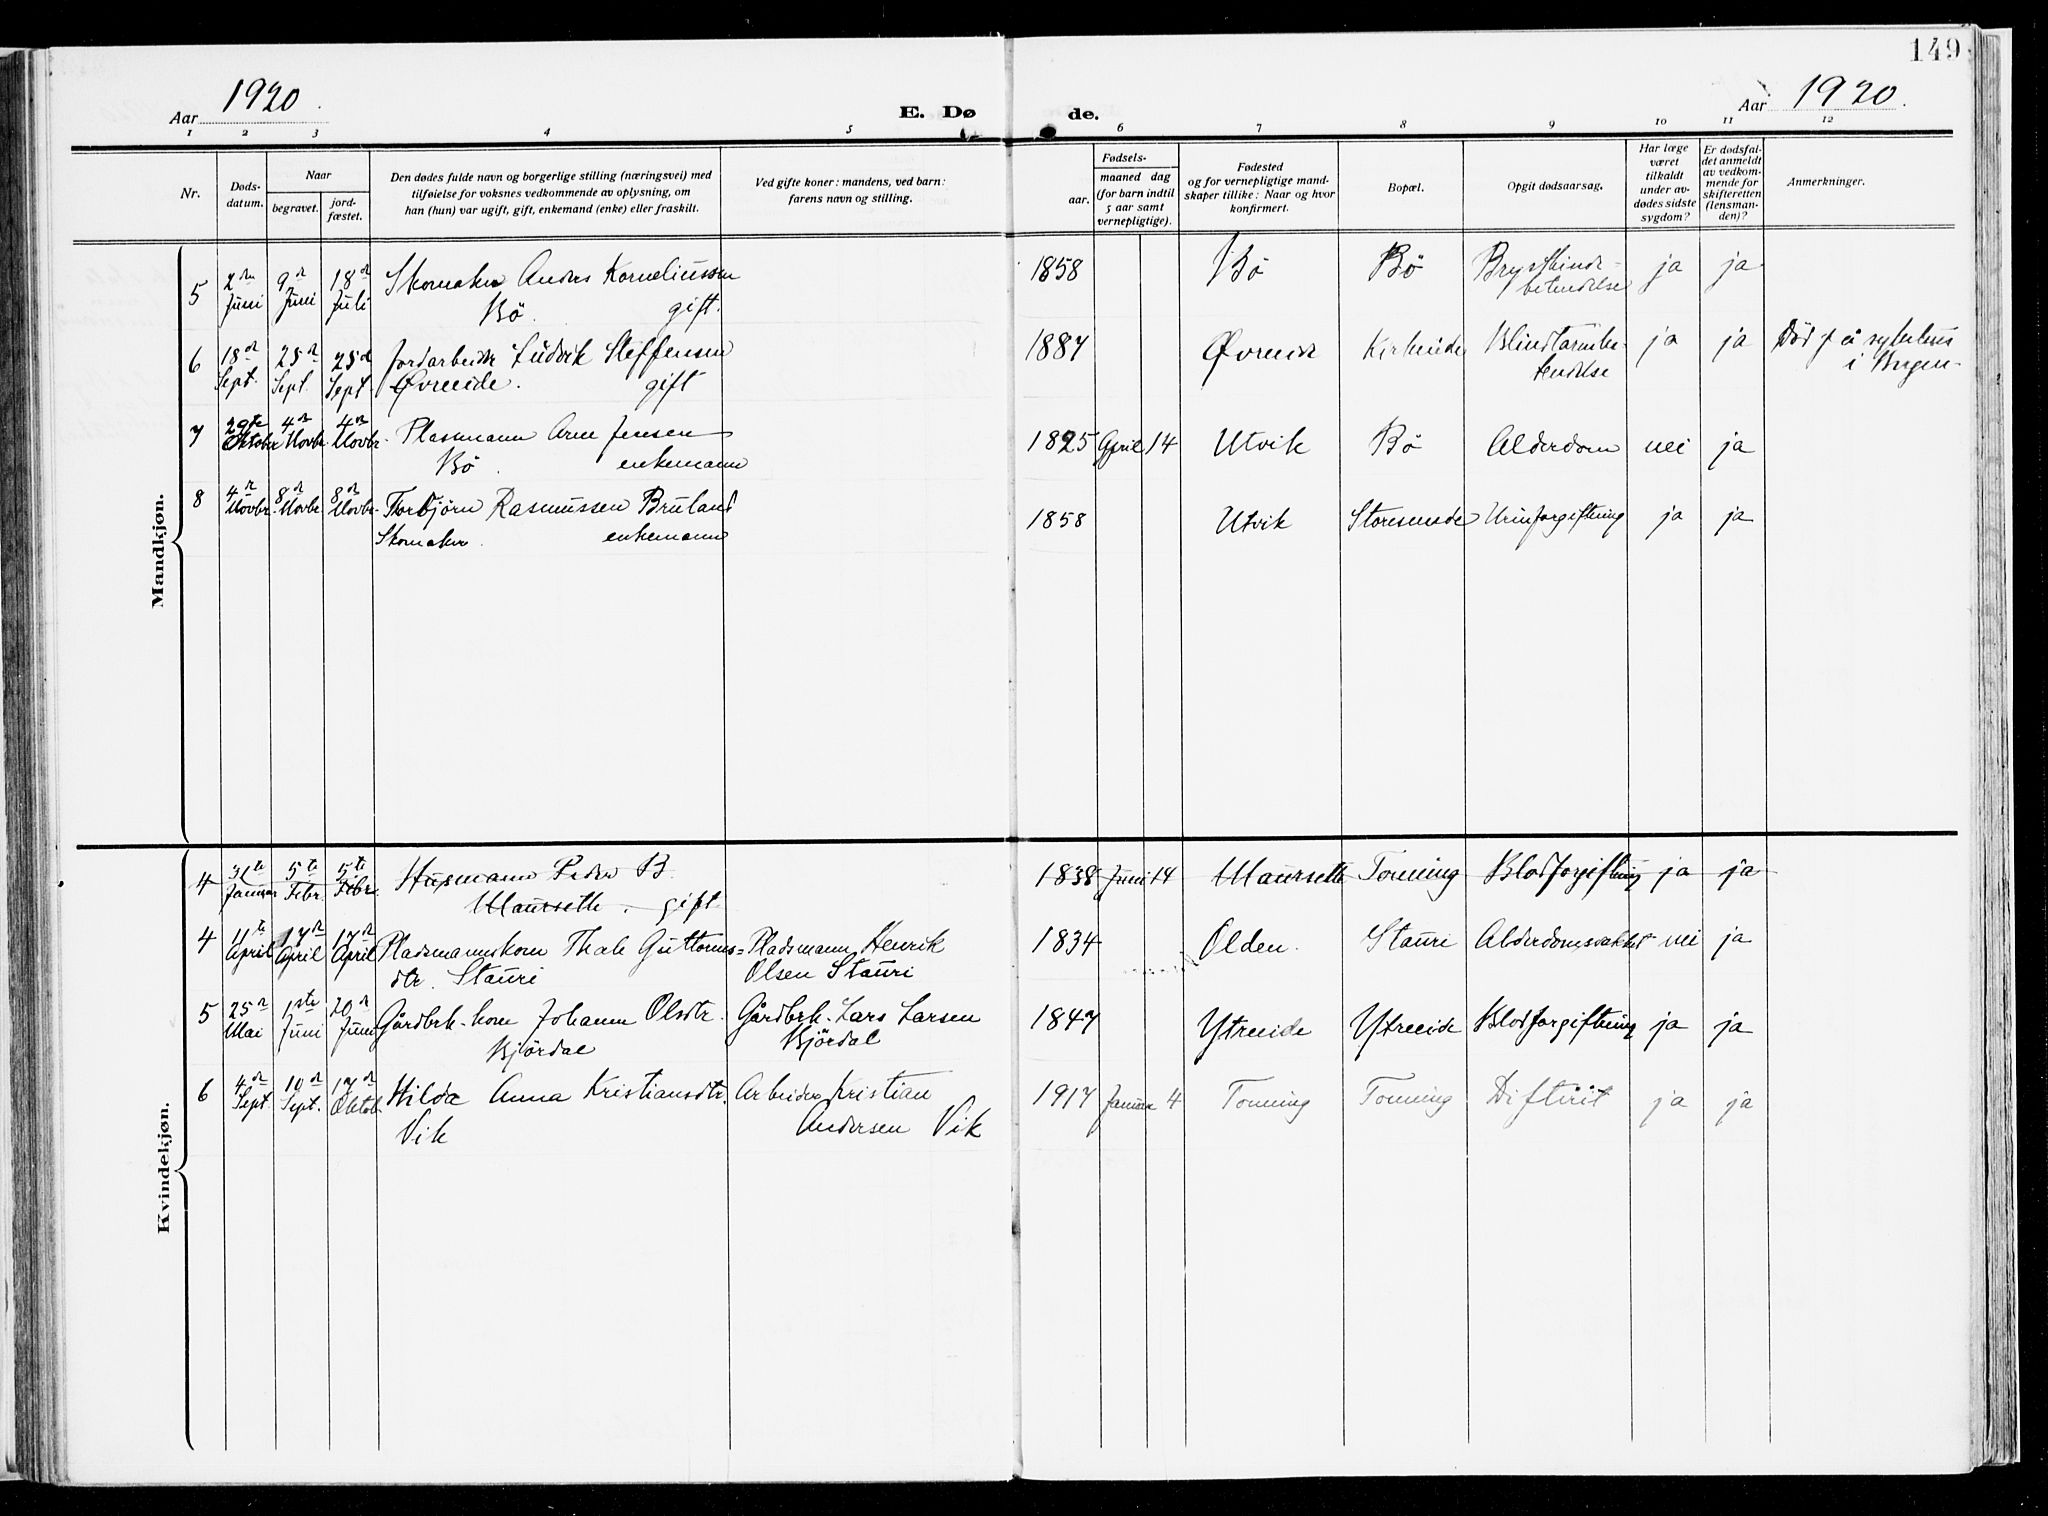 149
Aar 1920.
E. Døde.
Aar 1920.
1 2 3 4 5 6 7 8 9 10 11 12
Nr.
Døds-
datum.
Naar
begravet.
jord-
fæstet.
Den dødes fulde navn og borgerlige stilling (næringsvei) med
tilføielse for voksnes vedkommende av oplysning, om
han (hun) var ugift, gift, enkemand (enke) eller fraskilt.
Ved gifte koner: mandens, ved barn:
farens navn og stilling.
Fødsels-
aar.
maaned dag
(for barn indtil
5 aar samt
vernepligtige).
Fødested
og for vernepligtige mand-
skaper tillike: Naar og hvor
konfirmert.
Bopæl.
Opgit dødsaarsag.
Har læge
været
tilkaldt
under av-
dødes sidste
sygdom?
Er dødsfal-
det anmeldt
av vedkom-
mende for
skifteretten
(lensman-
den)?
Anmerkninger.
Mandkjøn.
5 2den 9de 18de Skomaker Anders Korneliussen 1858 Bö Bö Brysthinde- ja ja
Juni Juni Juli Bö. gift. betendelse
6 18de 25de 25de Jordarbeider Ludvik Steffensen 1887 Øvreeide Kirkeeide Blindtarmbe- ja ja Död på sykehus
Sept. Sept. Sept. Øvreeide. gift tendelse i Bergen
7 29te 4de 4de Plasmann Arne Jensen 1825 April 14 Utvik Bö Alderdom nei ja
Oktober Novbr. Novbr. Bö. enkemann
8 4de 8de 8de Torbjörn Rasmussen Bruland 1858 Utvik Storesunde Urinforgiftning ja ja
Novbr. Novbr. Novbr. Skomaker. enkemann
Kvindekjøn.
4 31te 5te 5te Husmann Peder B. 1838 Juni 14 Maursette Tonning Blodforgiftning ja ja
Januar Febr. Febr. Maurseth. gift.
4 11te 17de 17de Pladsmannskone Thale Guttorms= Pladsmann Henrik 1834 Olden. Stauri Alderdomssvakhet nei ja
April April April dtr. Stauri Olsen Stauri
5 25de 1ste 20de Gårdbrk.kone Johanne Olsdtr. Gårdbrk. Lars Larsen 1847 Ytreeide Ytreeide Blodforgiftning ja ja
Mai Juni Juni Björdal Björdal
6 4de 10de 17de Hilda Anna Kristiansdtr. Arbeider Kristian 1917 Januar 4 Tonning Tonning Difterit ja ja
Sept. Sept. Oktob. Vik Andersen Vik